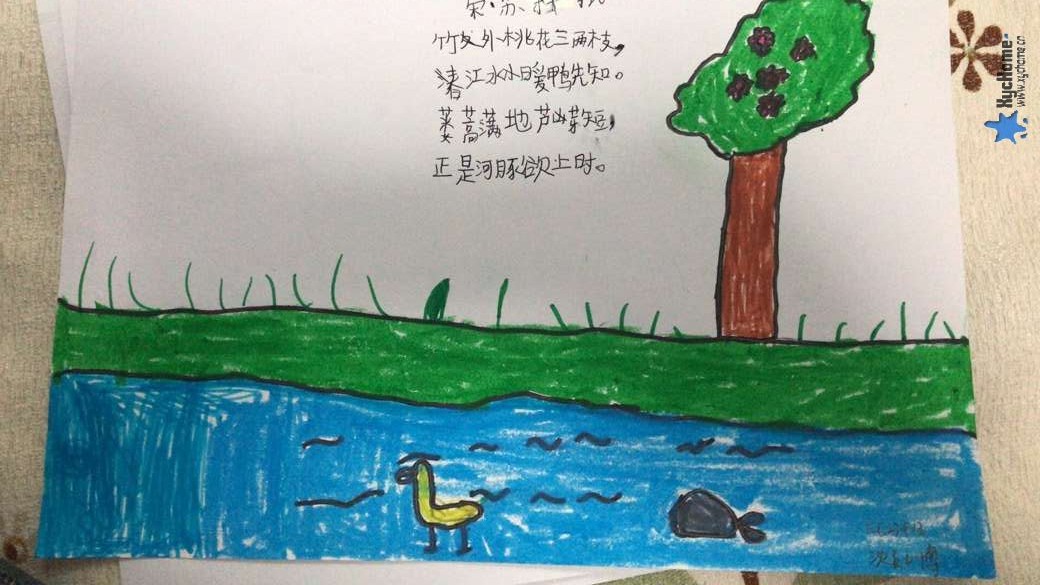 竹外桃花三两枝，
春江水暖鸭先知。
蒌蒿满地芦芽短，
正是河豚欲上时。
XycHome
www.xychome.cn